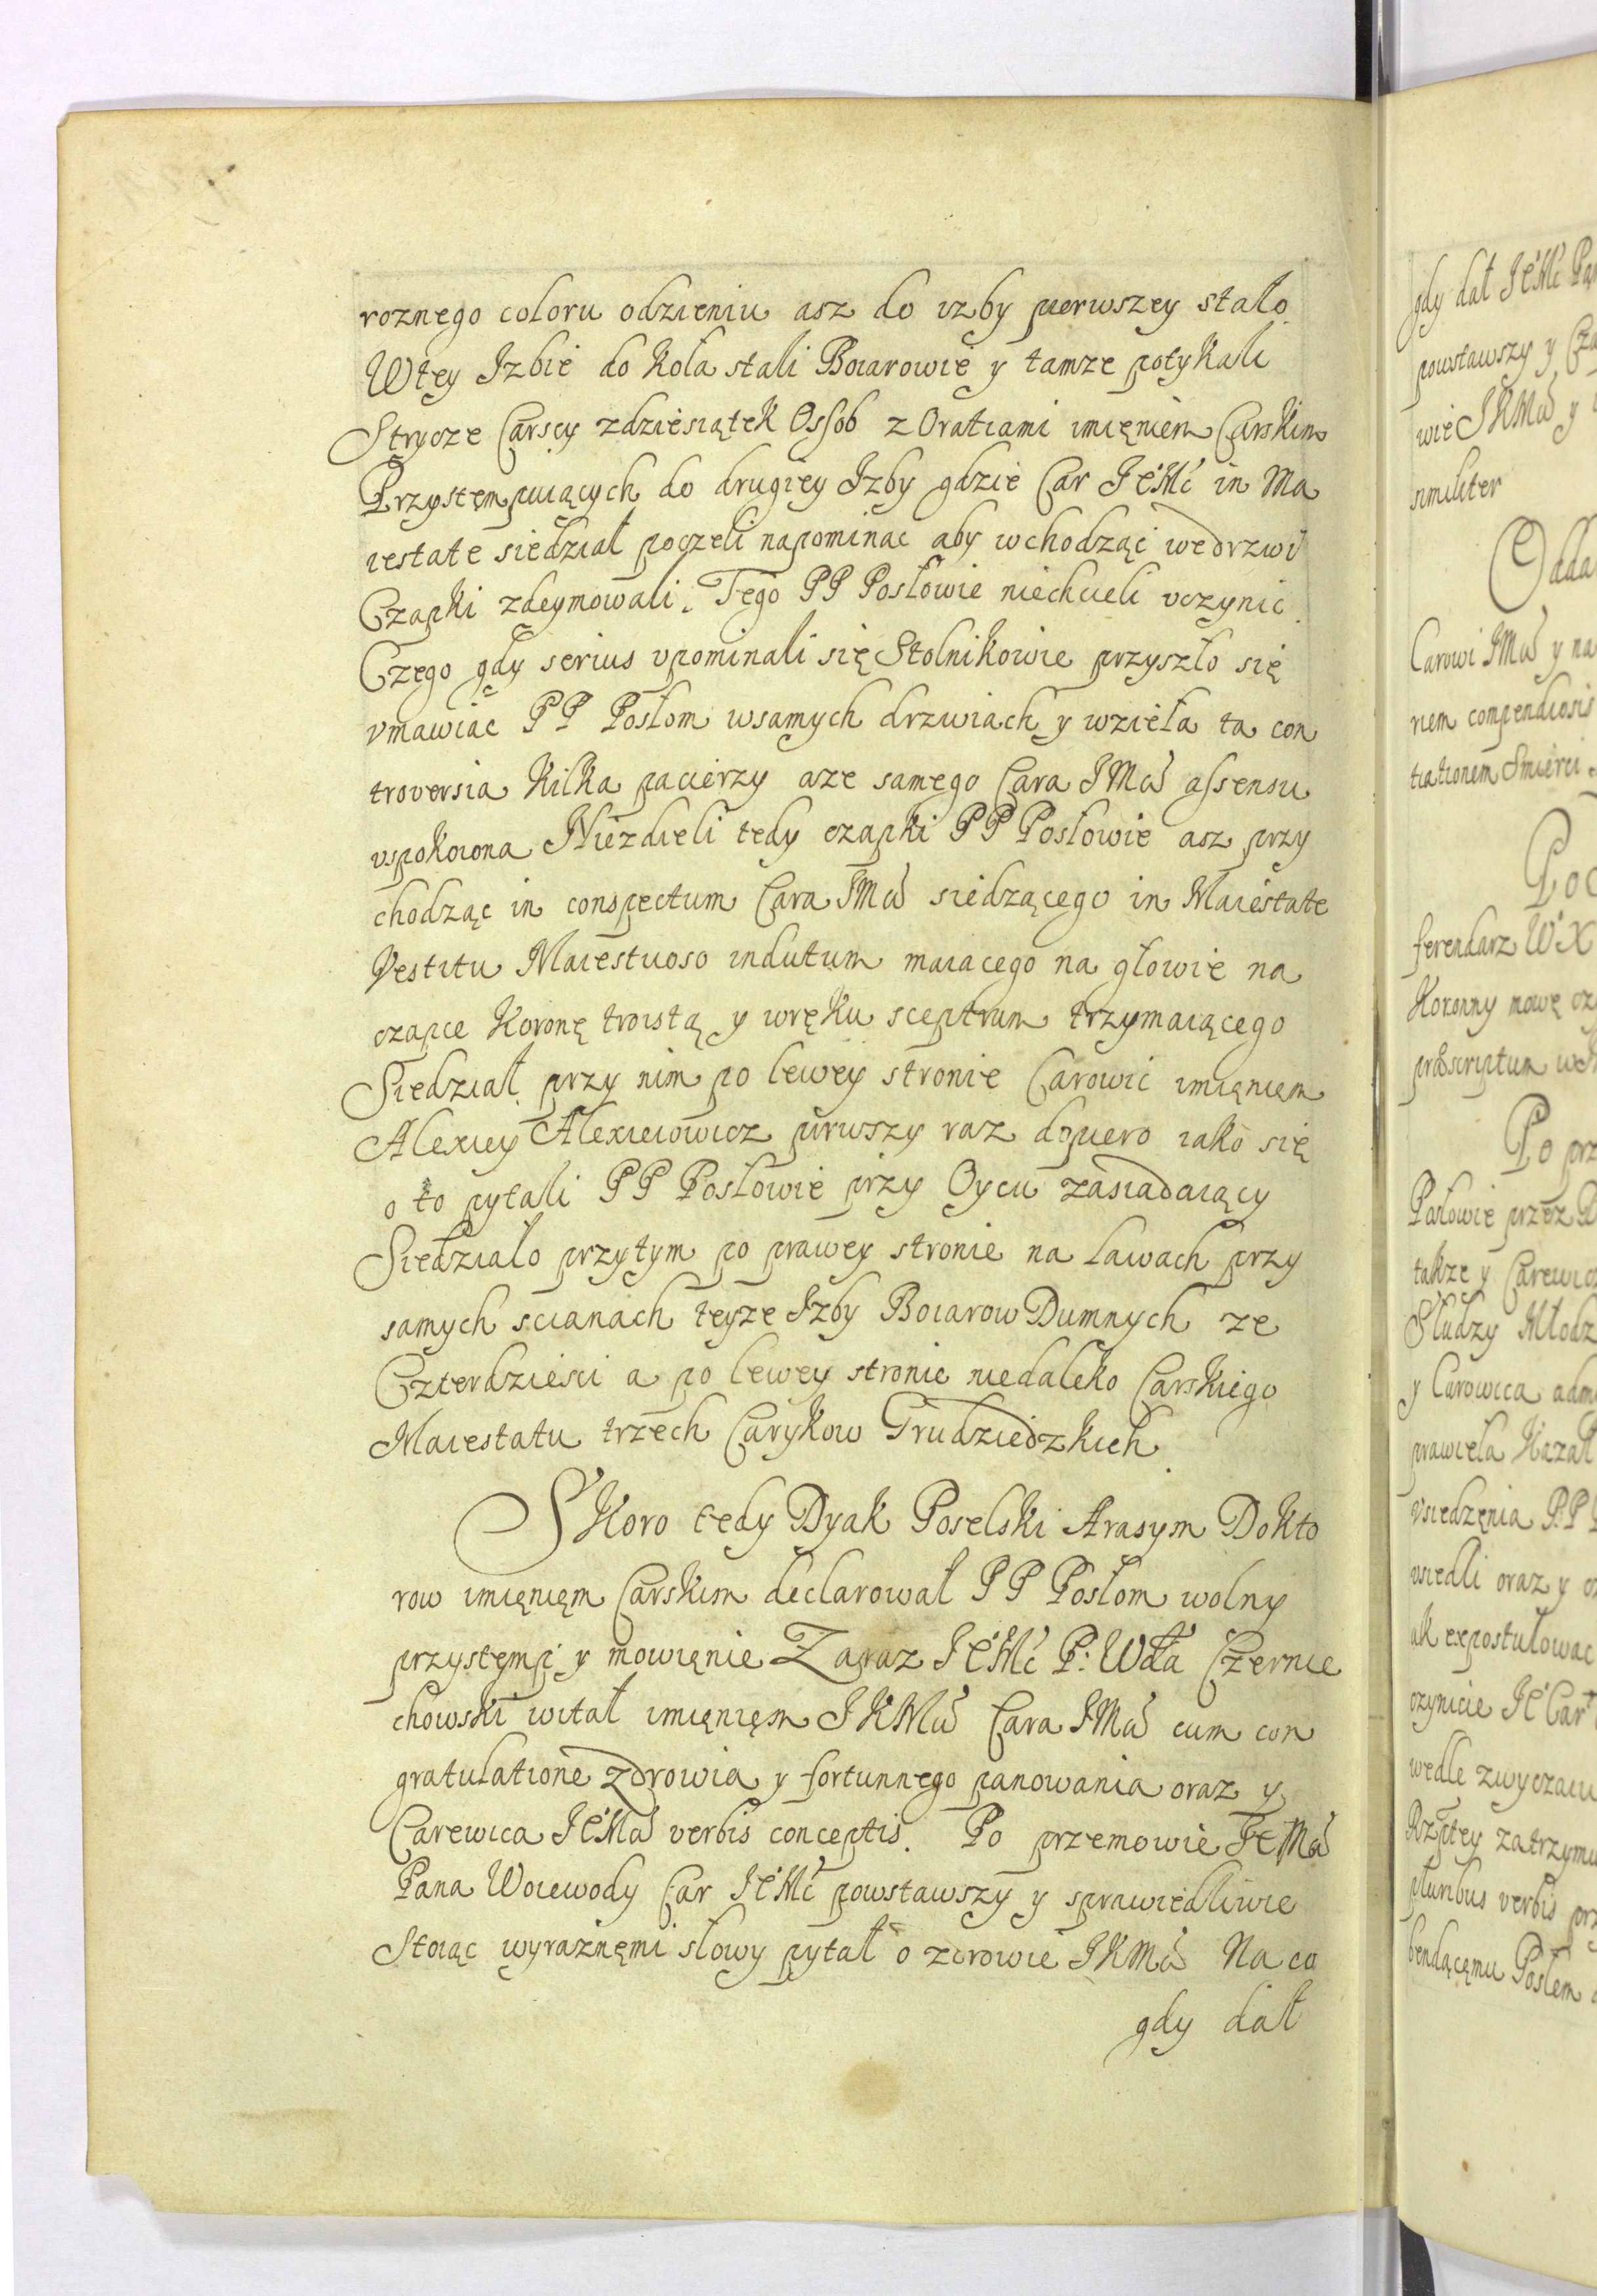 roznego coloru odzieniu asz do izby pierwszey stało.
Wtey Izbie do koła stali Boiarowie y tamze potykali
Strycze Carscy zdziesiątek Ossob z Oratiami imięniem Carskim
Przystempuiących do drugiey Izby gdzie Car JEMć in Ma
iestate siedział poczeli napominac aby wchodząc wedrzwi
Czapki zdeymowali. Tego PP Posłowie niechcieli vczynic.
Czego gdy serius vpominali się Stolnikowie przyszło się
vmawiac PP Posłom wsamych drzwiach y wzieła ta con
troversia kilka pacierzy aze samego Cara JMci assensu
vspokoiona Niezdieli tedy czapki PP Posłowie asz przy
chodząc in conspectum Cara JMci siedzącego in Maiestate
Vestitu Maiestuoso indutum maiacego na głowie na
czapce Koronę troistą y wręku sceptrum trzymaiącego
Siedział przy nim po lewey stronie Carowic imięnięm
Alexiey Alexieiowicz pirwszy raz dopiero iako się
o to pytali PP Posłowie przy Oycu zasiadaiący
Siedziało przytym po prawey stronie na ławach przy
samych scianach teyze Izby Boiarow Dumnych ze
Czterdziesci a po lewey stronie niedaleko Carskiego
Maiestatu trzech Carykow Grudziedzkich.
Skoro tedy Dyak Poselski Arasym Dokto
row imięnięm Carskim declarował PP Posłom wolny
przystęmp y mowięnie Zaraz JEMć P: Wda Czernie
chowski witał imięnięm JKMci Cara JMci cum con
gratulatione zdrowia y fortunnego panowania oraz y
Carewica JEMci verbis conceptis. Po przemowie JeMci
Pana Woiewody Car JEMć powstawszy y sprawiedliwie
Stoiąc wyraznęmi słowy pytał o zdrowie JKMci Na co
gdy dał
gdy dał JEMć
powstawszy y
wie JKMci y
similiter
Carowi JMci y na
nem compendiosis
tiationem Smierci
ferendarz WX
Koronny mowę
Po
Posłowie przez
takze y
Słudzy
y Carowica
prawiela Kazał
vsiedzęnia PP
vsiedli oraz y
ak expostulowac
czynicie
wedle zwyczaiu
Rzptey
pluribus verbis
bendącęmu Posłem